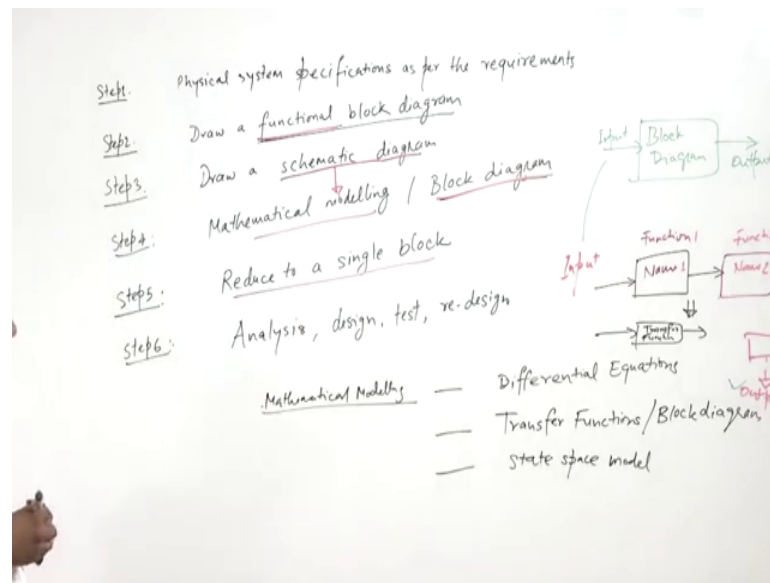 Step1. Physical system specifications as per the requirements
Step2. Draw a functional block diagram
Step3. Draw a schematic diagram
Step4: Mathematical modelling / Block diagram
Step5: Reduce to a single block
Step6: Analysis, design, test, re-design
Mathematical Modelling — Differential Equations
— Transfer Functions/Block diagram
— State space model
Input
Block
Diagram
Output
Function1
Functi
Input
Name1
Name2
Transfer
Function
Outp